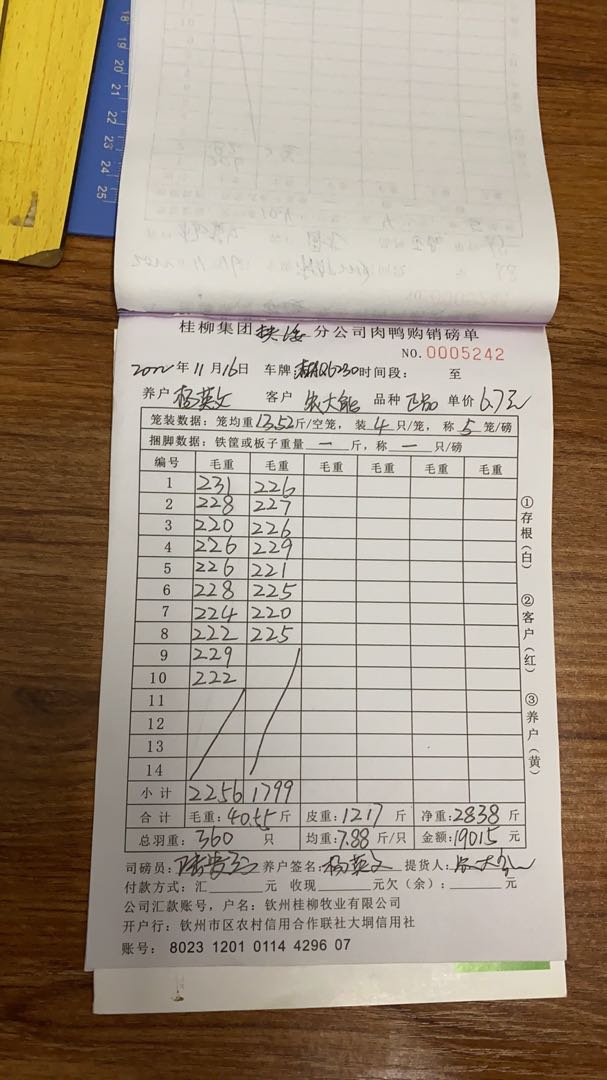 18
19
20
21
22
23
24
25
桂柳集团 扶绥 分公司肉鸭购销磅单
NO.0005242
2022年11月16日 车牌: 时间段: 至
养户 杨英文 客户 农大能 品种 正品 单价 6.7元
笼装数据:笼均重13.52斤/空笼,装4只/笼,称5笼/磅
捆脚数据:铁筐或板子重量 一 斤,称 一 只/磅
编号 毛重 毛重 毛重 毛重 毛重 毛重
1 231 226
2 228 227
3 220 226
4 226 229
5 226 221
6 228 225
7 224 220
8 222 225
9 229
10 222
11
12
13
14
小计 2256 1799
合计 毛重:4055斤 皮重:1217斤 净重:2838斤
总羽重:360只 均重:7.88斤/只 金额:19015元
司磅员: 养户签名:杨英文 提货人:
付款方式:汇 元 收现 元欠(余): 元
公司汇款账号,户名:钦州桂柳牧业有限公司
开户行:钦州市区农村信用合作联社大垌信用社
账号: 8023 1201 0114 4296 07
①存根(白)
②客户(红)
③养户(黄)